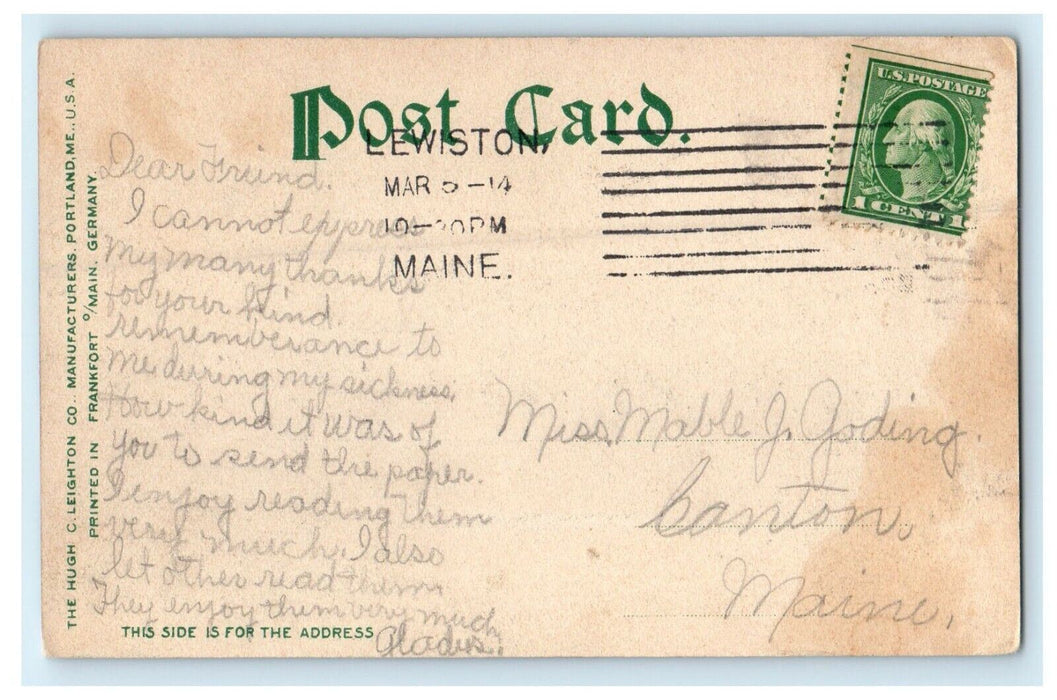 Post Card.
U.S. POSTAGE
1 CENT 1
LEWISTON,
MAR 5 - 14
10-30PM
MAINE.
Dear Friend.
I cannot express
My many thanks
for your kind.
rememberance to
me during my sickness.
How kind it was of
you to send the paper.
I enjoy reading them
very much. I also
let other read them.
They enjoy them very much
Gladys.
Miss Mable J. Goding.
Canton,
Maine.
THIS SIDE IS FOR THE ADDRESS
THE HUGH C. LEIGHTON CO., MANUFACTURERS, PORTLAND, ME., U.S.A.
PRINTED IN FRANKFORT O/MAIN, GERMANY.